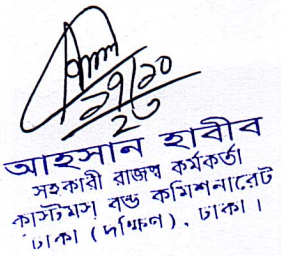 ২৭/১০
২৩
আহসান হাবীব
সহকারী রাজস্ব কর্মকর্তা
কাস্টমস্ বন্ড কমিশনারেট
ঢাকা (দক্ষিণ), ঢাকা।